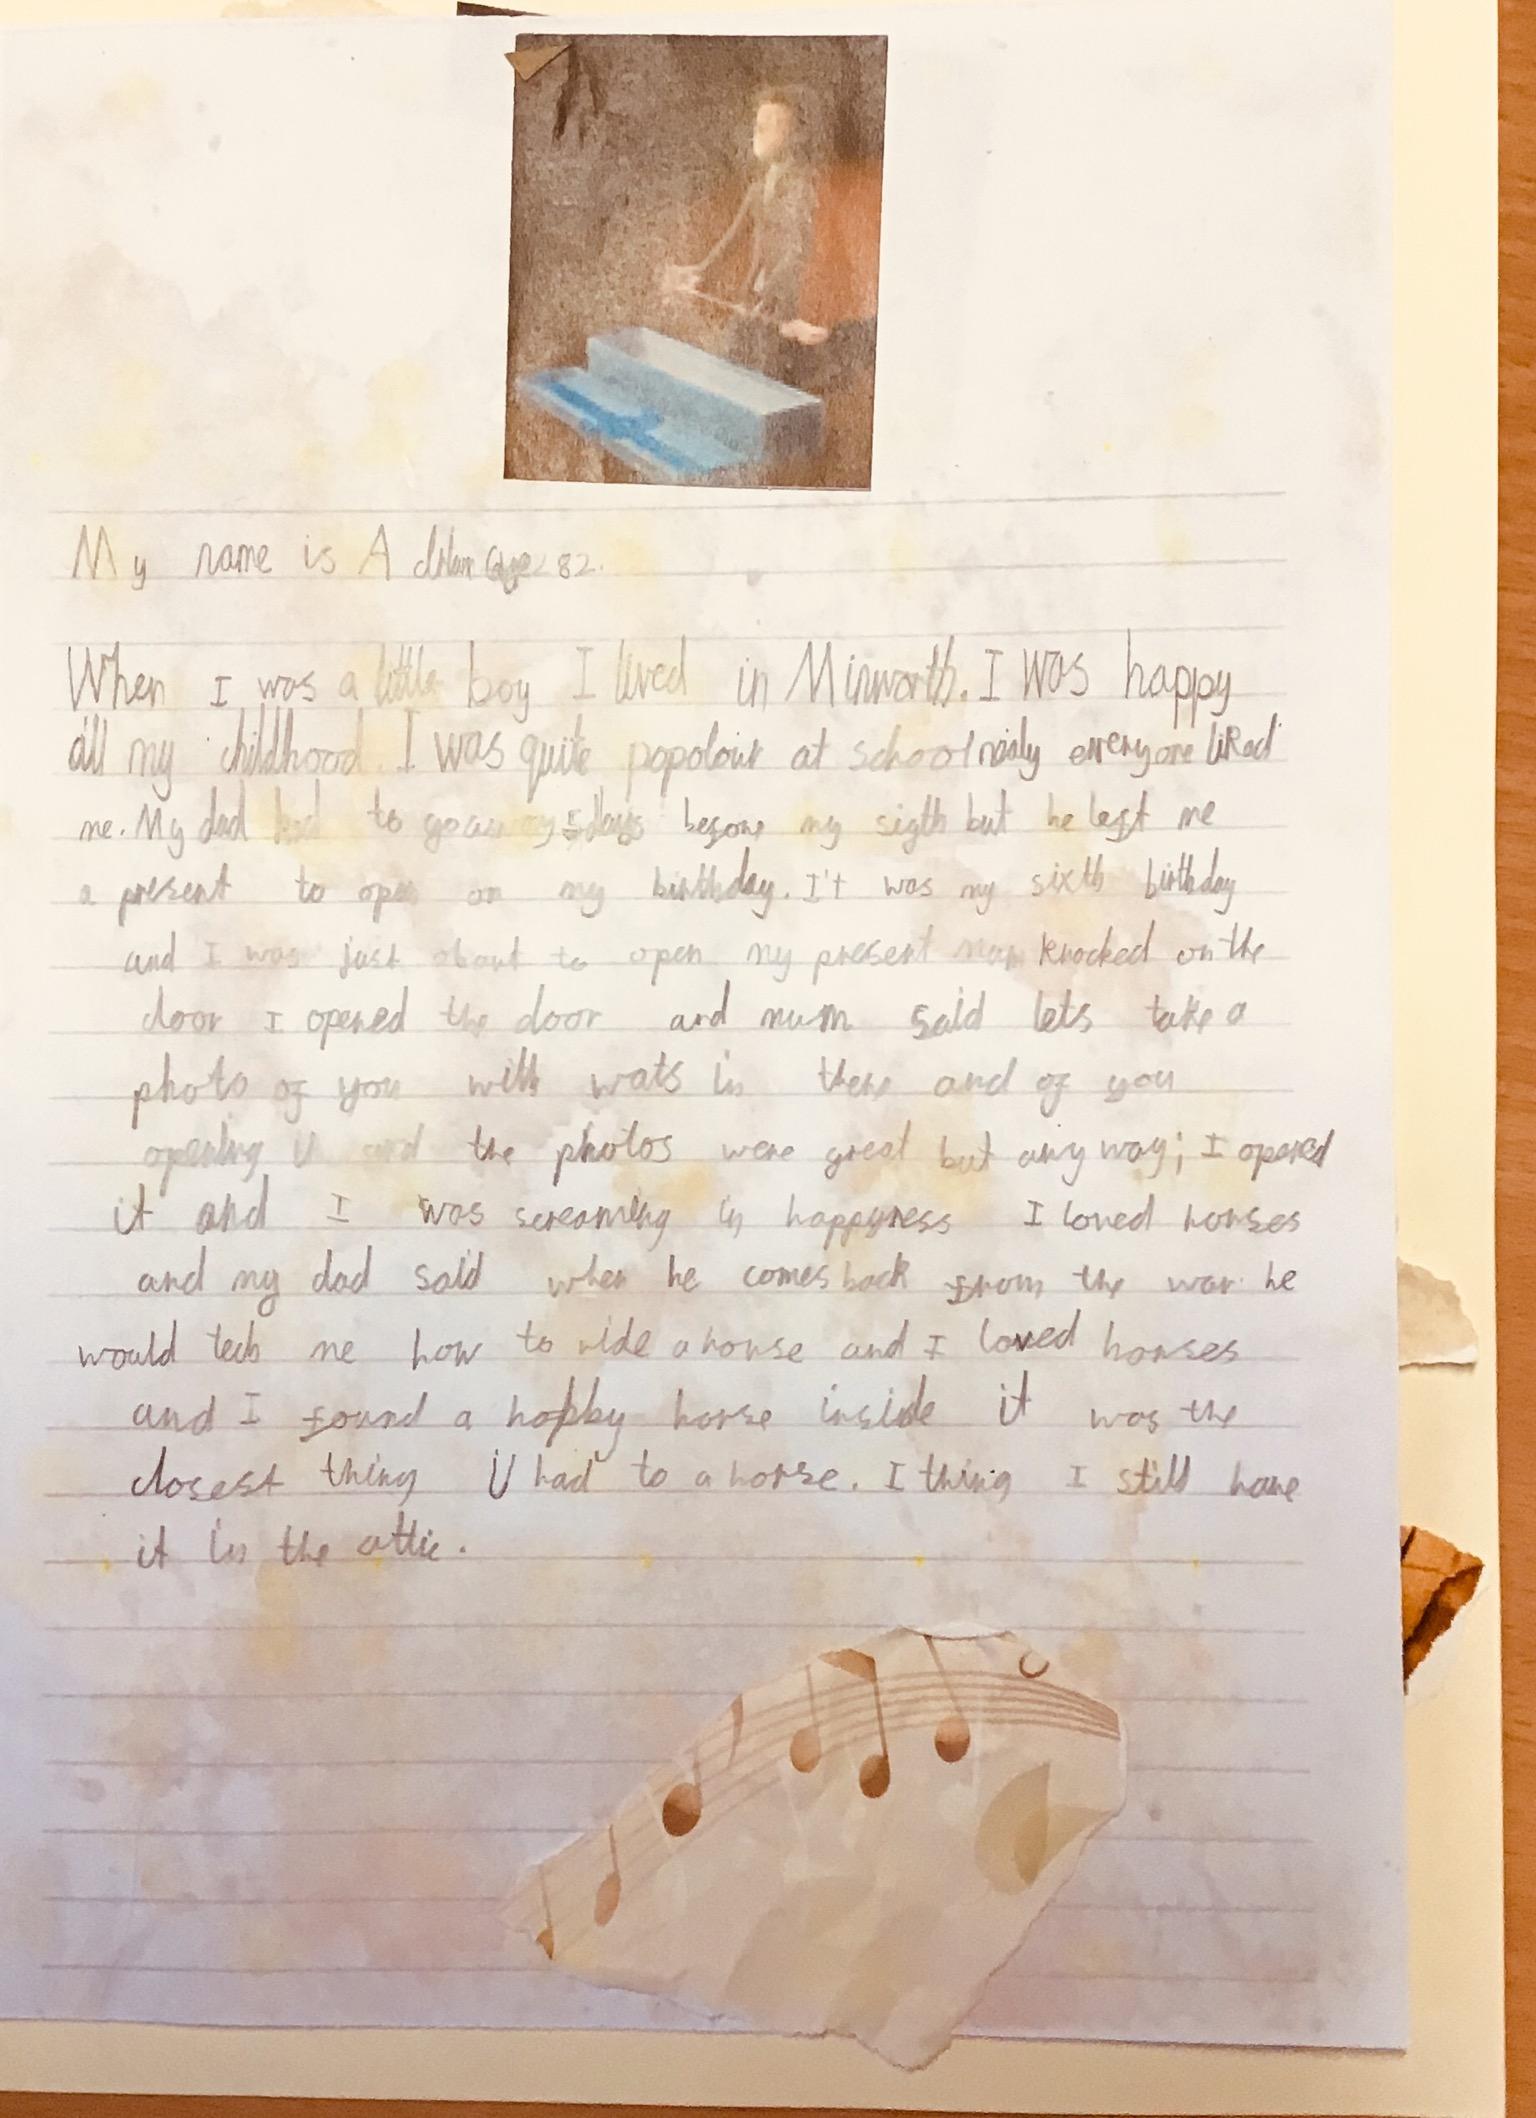 My name is A age 82.
When I was a little boy I lived in Minworth. I was happy
all my childhood. I was quite popolour at school everyone liked
me. My dad had to go away 5 days before my sigth but he left me
a present to open on my birthday. I't was my sixth birthday
and I was just about to open my present mum knocked on the
door I opened the door and mum said lets take a
photo of you with wats in there and of you
opening it and the photos were great but any way; I opened
it and I was screaming in happyness I loved horses
and my dad said when he comes back from the war he
would me how to ride a horse and I loved horses
and I found a hobby horse inside it was the
closest thing I had to a horse. I thing I still have
it in the attic.